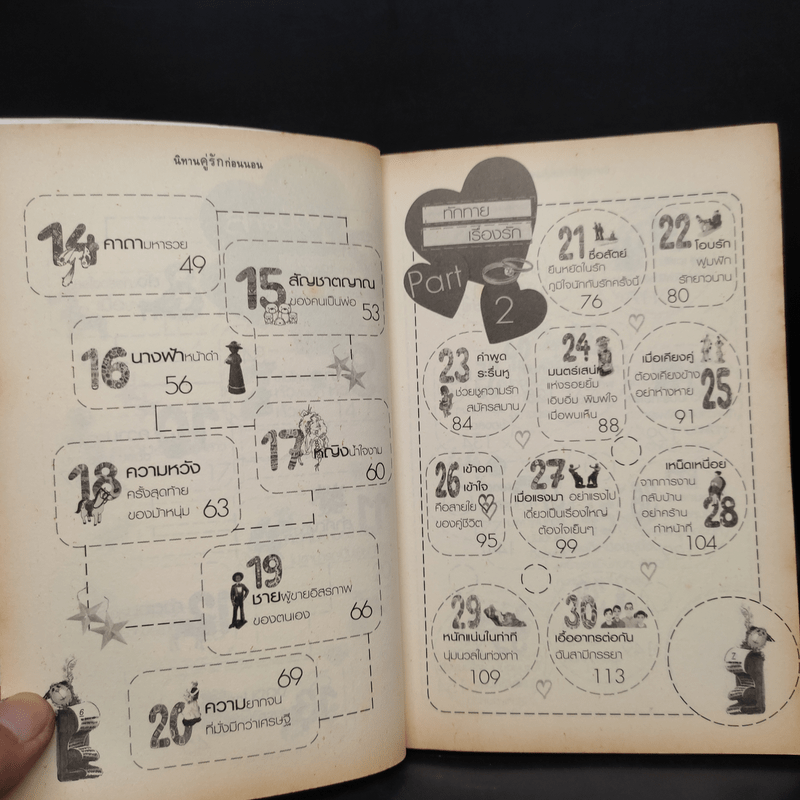 นิทานคู่รักก่อนนอน
14 คาถามหารวย
49
15 สัญชาตญาณ
ของคนเป็นพ่อ 53
16 นางฟ้าหน้าดำ
56
17 หญิงน้ำใจงาม
60
18 ความหวัง
ครั้งสุดท้าย
ของม้าหนุ่ม 63
19
ชายผู้ขายอิสรภาพ
ของตนเอง 66
69
20 ความยากจน
ที่มั่งมีกว่าเศรษฐี
6
ทักทาย
เรื่องรัก
Part
2
21 ซื่อสัตย์
ยืนหยัดในรัก
ภูมิใจนักกับรักครั้งนี้
76
22 โอบรัก
พูมฟัก
รักยาวนาน
80
23 คำพูด
ระรื่นหู
ช่วยชูความรัก
สมัครสมาน
84
24
มนตร์เสน่ห์
แห่งรอยยิ้ม
เอิบอิ่ม พิมพ์ใจ
เมื่อพบเห็น
88
เมื่อเคียงคู่
ต้องเคียงข้าง
อย่าห่างหาย 25
91
26 เข้าอก
เข้าใจ
คือสายใย
ของคู่ชีวิต
95
27
เมื่อแรงมา อย่าแรงไป
เดี๋ยวเป็นเรื่องใหญ่
ต้องใจเย็นๆ
99
เหน็ดเหนื่อย
จากการงาน
กลับบ้าน
อย่าคร้าน 28
ทำหน้าที่
104
29
หนักแน่นในท่าที
นุ่มนวลในท่วงท่า
109
30
เอื้ออาทรต่อกัน
ฉันสามีภรรยา
113
7